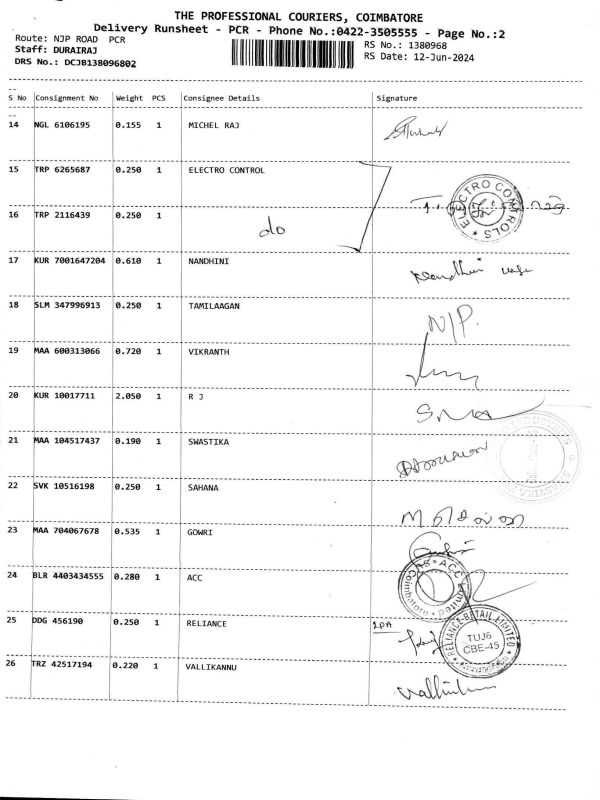 THE PROFESSIONAL COURIERS, COIMBATORE
Delivery Runsheet - PCR - Phone No.:0422-3505555 - Page No.:2
Route: NJP ROAD PCR
RS No.: 1380968
Staff: DURAIRAJ
RS Date: 12-Jun-2024
DRS No.: DCJB138096802
S No Consignment No Weight PCS Consignee Details Signature
14 NGL 6106195 0.155 1 MICHEL RAJ
15 TRP 6265687 0.250 1 ELECTRO CONTROL
ELECTRO CONTROLS
16 TRP 2116439 0.250 1 do
17 KUR 7001647204 0.610 1 NANDHINI
18 SLM 347996913 0.250 1 TAMILAAGAN N/P.
19 MAA 600313066 0.720 1 VIKRANTH
20 KUR 10017711 2.050 1 R J
21 MAA 104517437 0.190 1 SWASTIKA
22 SVK 10516198 0.250 1 SAHANA
23 MAA 704067678 0.535 1 GOWRI
24 BLR 4403434555 0.280 1 ACC
ACC Limited Coimbatore
25 DDG 456190 0.250 1 RELIANCE
RELIANCE RETAIL LIMITED
TUJ6
CBE-45
26 TRZ 42517194 0.220 1 VALLIKANNU